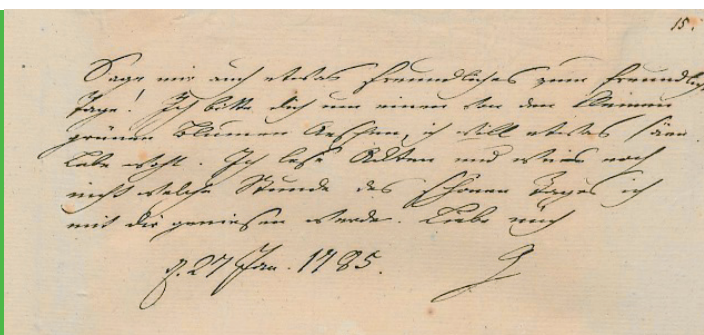 15.
Sage mir auch etwas freundliches zum freundlich
Tage! Ich bitte dich um einen von den kleinen
grünen Blumen Aeschen, ich will etwas säen
Lebe wohl. Ich lese Ackten und weis noch
nicht welche Stunde des schönen Tages ich
mit dir geniesen werde. Liebe mich
d. 27 Jan. 1785. G